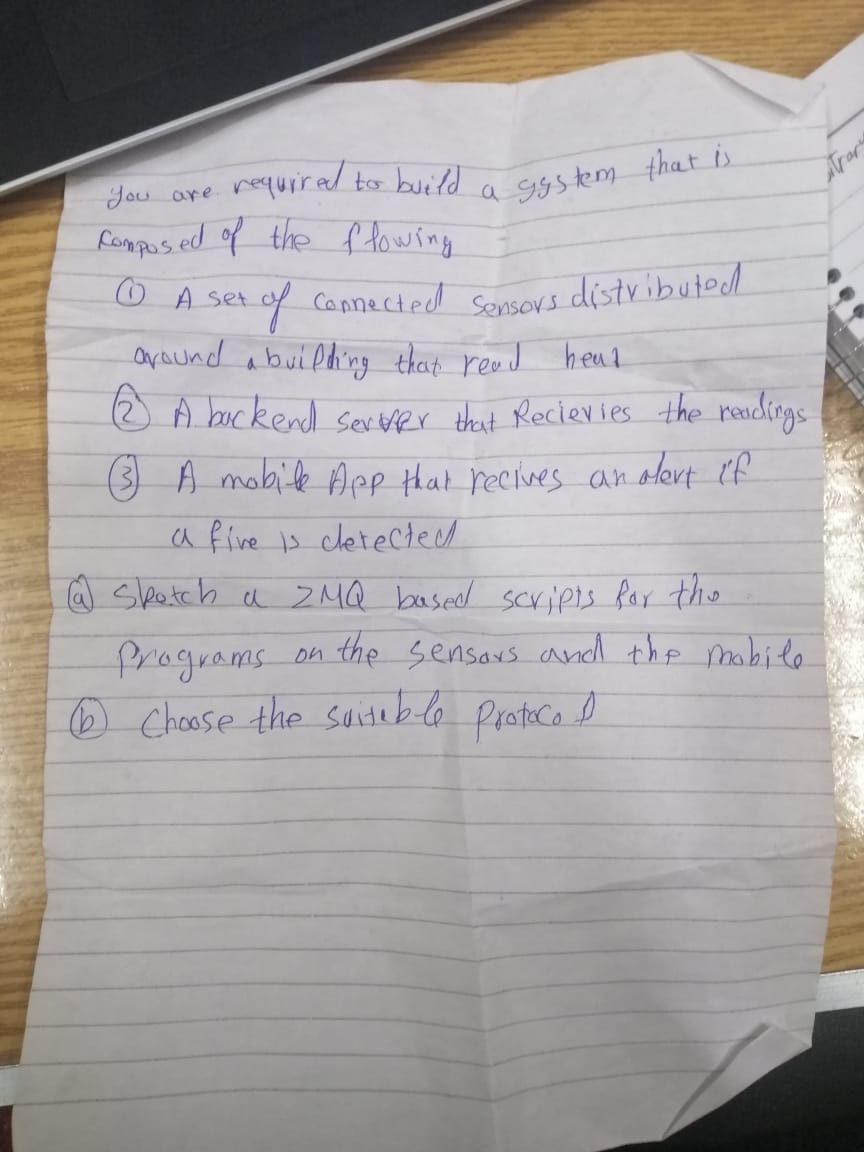 you are required to build a system that is
Composed of the flowing
① A set of connected sensors distributed
around a building that read heat
② A backend server that Recievies the readings
③ A mobile App that recives an alert if
a fire is detected
ⓐ Sketch a ZMQ based scripts for the
programs on the sensors and the mobile
ⓑ Choose the suitable protocol